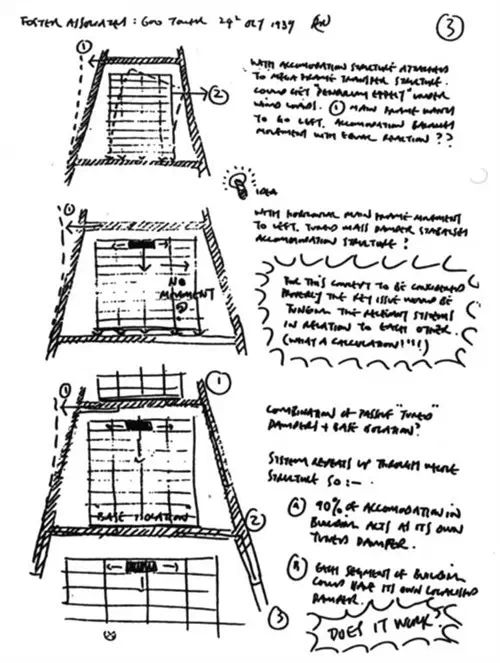 FOSTER ASSOCIATES : 600 TOWER 24th OCT 1989
3
1
2
WITH ACCOMODATION STRUCTURE ATTACHED
TO MEGA FRAME TRANSFER STRUCTURE.
COULD GET "PENDULUM EFFECT" UNDER
WIND LOADS. 1 MAIN FRAME WANTS
TO GO LEFT, ACCOMODATION BALANCES
MOVEMENT WITH EQUAL REACTION ??
IDEA
1
WITH HORIZONTAL MAIN FRAME MOVEMENT
TO LEFT, TUNED MASS DAMPER STABILISES
ACCOMODATION STRUCTURE ?
NO
MOVEMENT
?
FOR THIS CONCEPT TO BE CONSIDERED
PROPERLY THE KEY ISSUE WOULD BE
TUNING THE RELEVANT SYSTEMS
IN RELATION TO EACH OTHER.
(WHAT A CALCULATION!!!!)
1
1
COMBINATION OF PASSIVE "TUNED"
DAMPERS + BASE ISOLATION?
SYSTEM REPEATS UP THROUGH WHOLE
STRUCTURE SO :-
A 90% OF ACCOMODATION IN
BUILDING ACTS AS ITS OWN
TUNED DAMPER.
"BASE ISOLATION"
2
B EACH SEGMENT OF BUILDING
COULD HAVE ITS OWN LOCALISED
DAMPER.
3
DOES IT WORK?